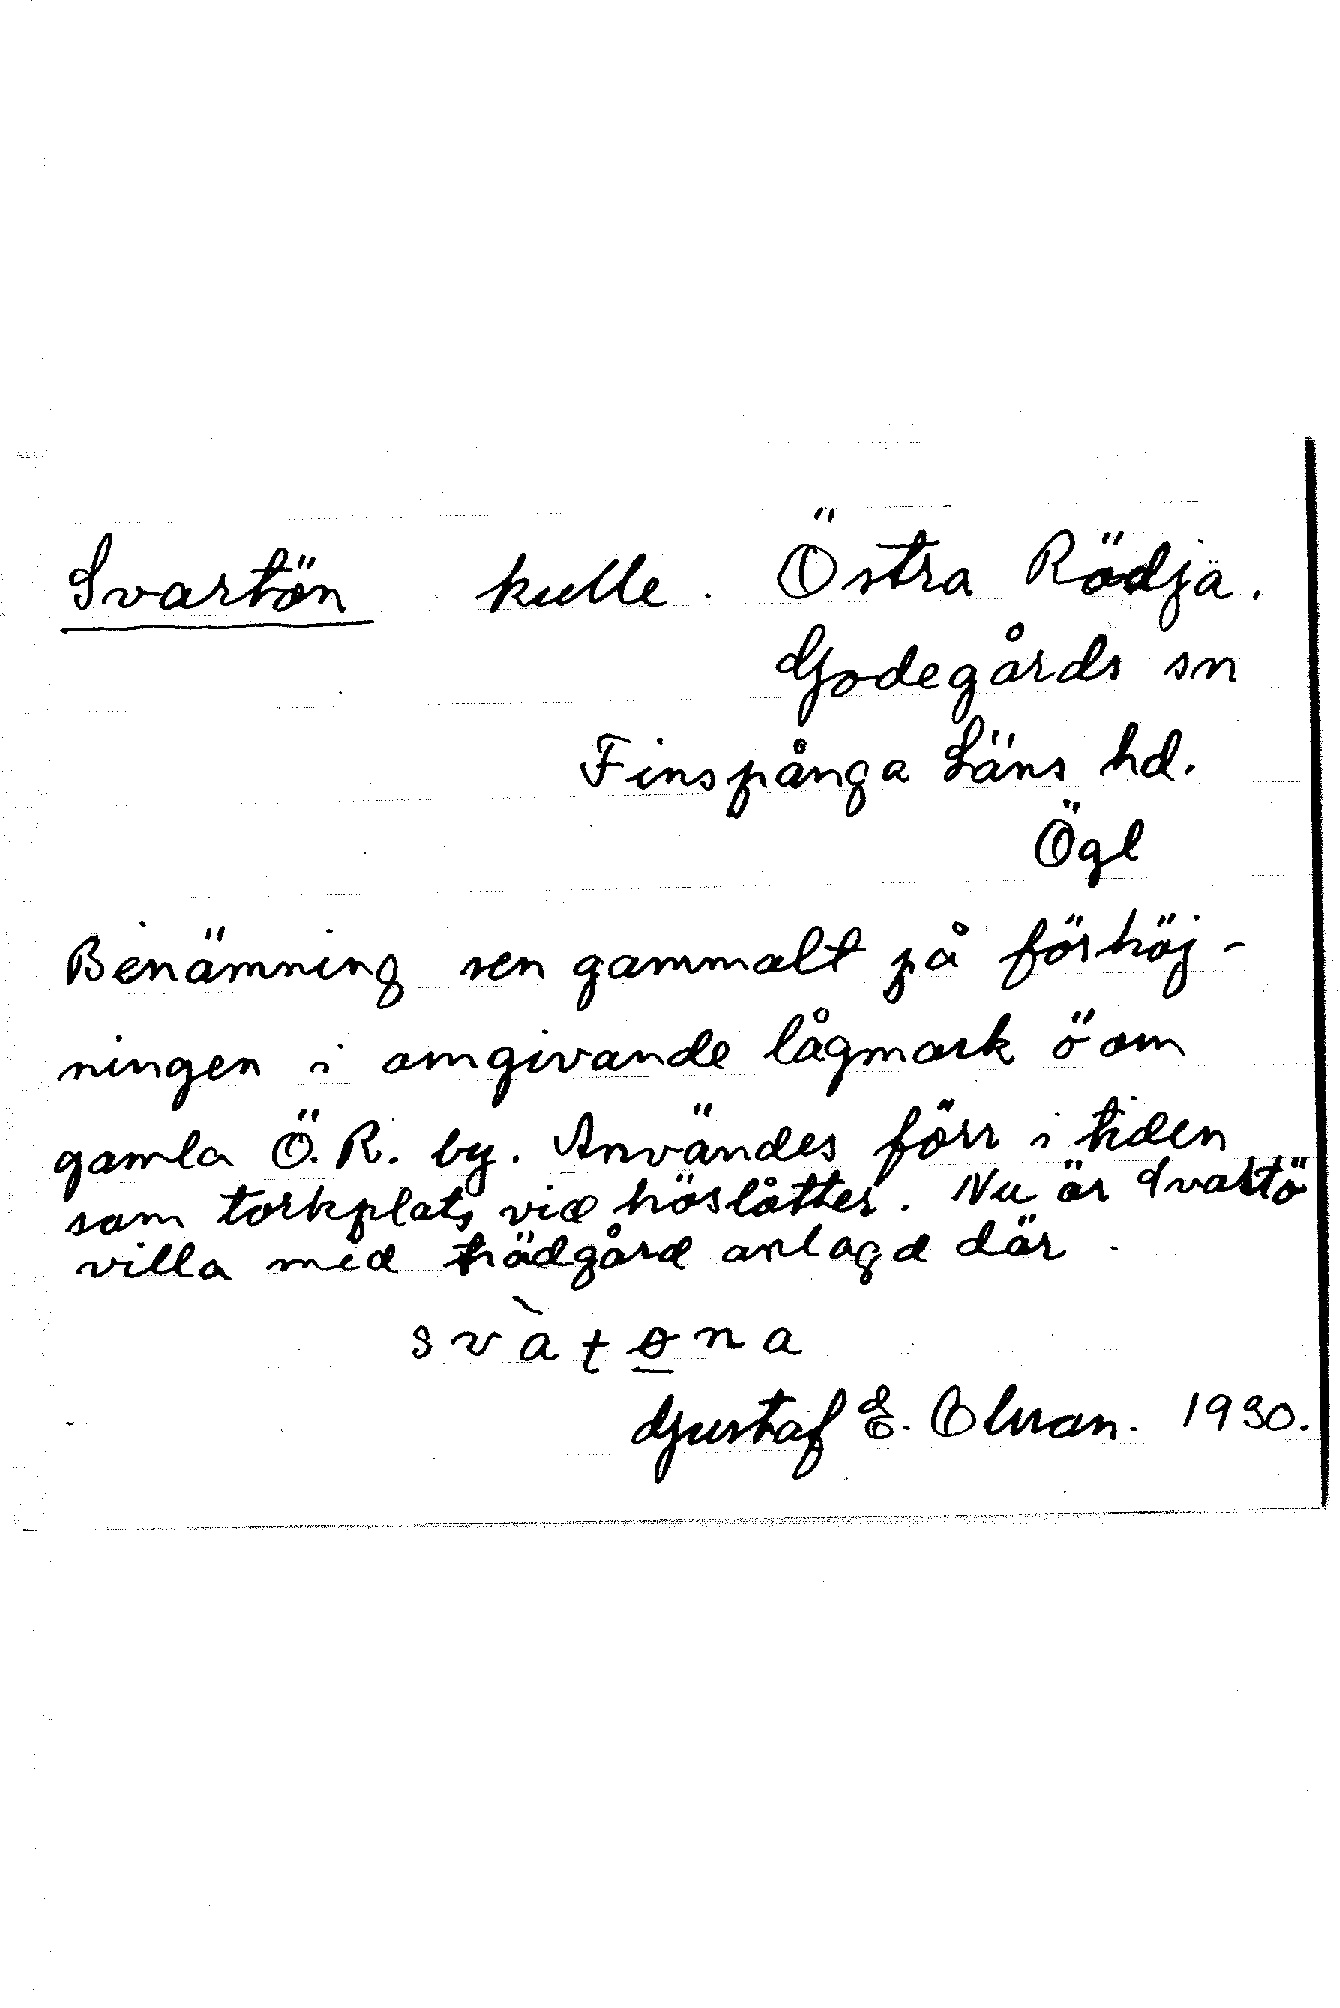 Svartön kulle. Östra Rödja.
Godegårds sn
Finspånga Läns hd.
Ögl
Benämning sen gammalt på förhöj-
ningen i omgivande lågmark ö om
gamla Ö. R. by. Användes förr i tiden
som torkplats vid höslåtter. Nu är Svartö
villa med trädgård anlagd där.
svàtøna
Gustaf E. Olsson. 1930.